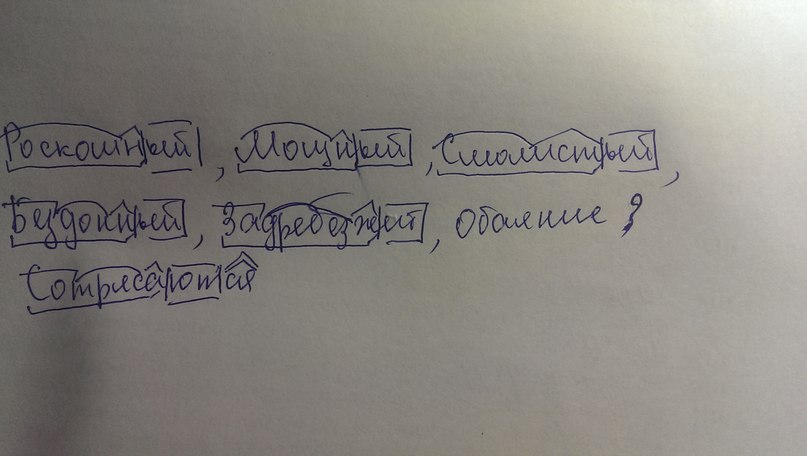 Роскошный, Мощный, Смолистый,
Бездонный, Задребезжит, обаяние ?
Сотрясаются